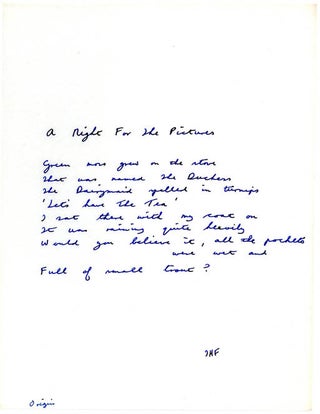 A Night For The Pictures
Green moss grew on the stove
That was named The Duchess
The Dairymaid spelled in turnips
'Let's have The Tea'
I sat there with my coat on
It was raining quite heavily
Would you believe it, all the pockets
were wet and
Full of small trout?
IHF
Origin